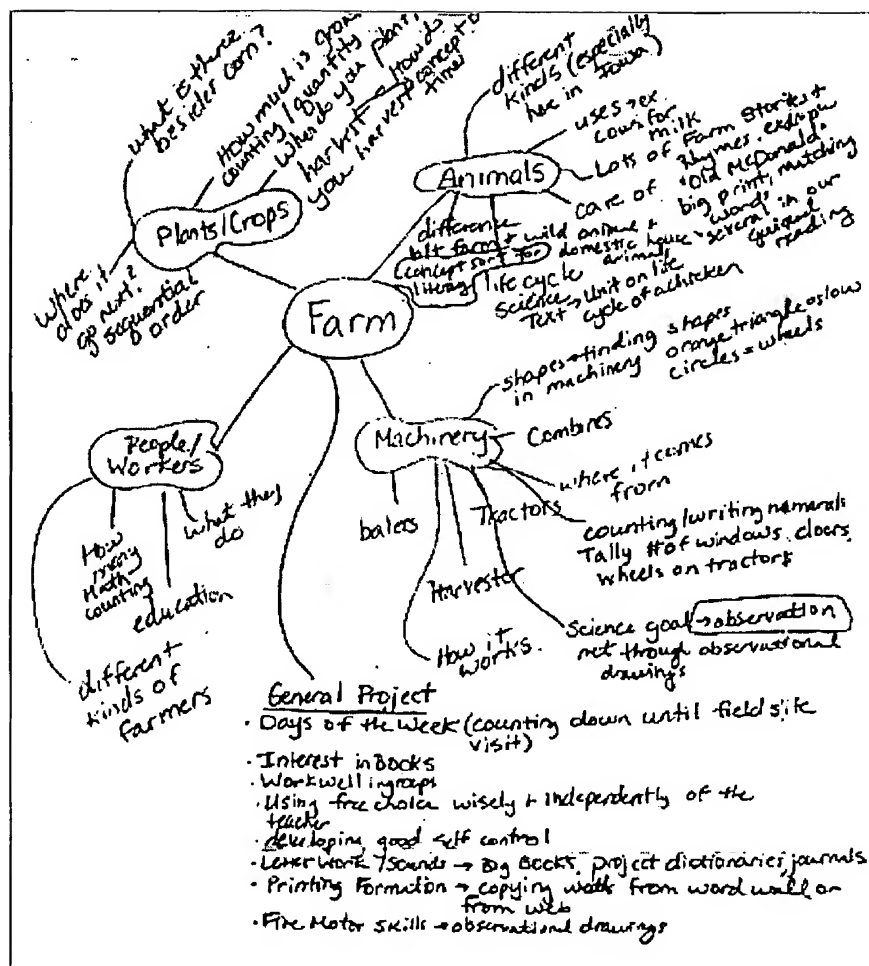 what is there
besides corn?
How much is grown
counting / quantity
When do you plant,
harvest - How do
you harvest concept of
time
Plants/Crops
Where
does it
go next?
sequential
order
different
kinds (especially
here in Iowa)
uses → ex
cows for
milk
Animals
Lots of Farm Stories +
Rhymes.
"Old McDonald"
big print, matching
words
several in our
guided
reading
care of
difference
b/t farm + wild animal +
domestic house
animals
concept sort for
literacy
life cycle
Science
Text → Unit on life
cycle of a chicken
Farm
shapes → finding shapes
in machinery orange triangle = slow
circles = wheels
Machinery
Combines
where it comes
from
Tractors
counting/writing numerals
Tally # of windows, doors,
wheels on tractors
balers
Harvester
How it
works.
Science goal → observation
met through observational
drawings
People/
Workers
How
many
Math
counting
what they
do
education
different
kinds of
farmers
General Project
· Days of the Week (counting down until field site
visit)
· Interest in Books
· Work well in groups
· Using free choice wisely + independently of the
teacher
· developing good self control
· Letter Work / Sounds → Big Books, project dictionaries, journals
· Printing Formation → copying words from word wall or
from web
· Fine Motor skills → observational drawings